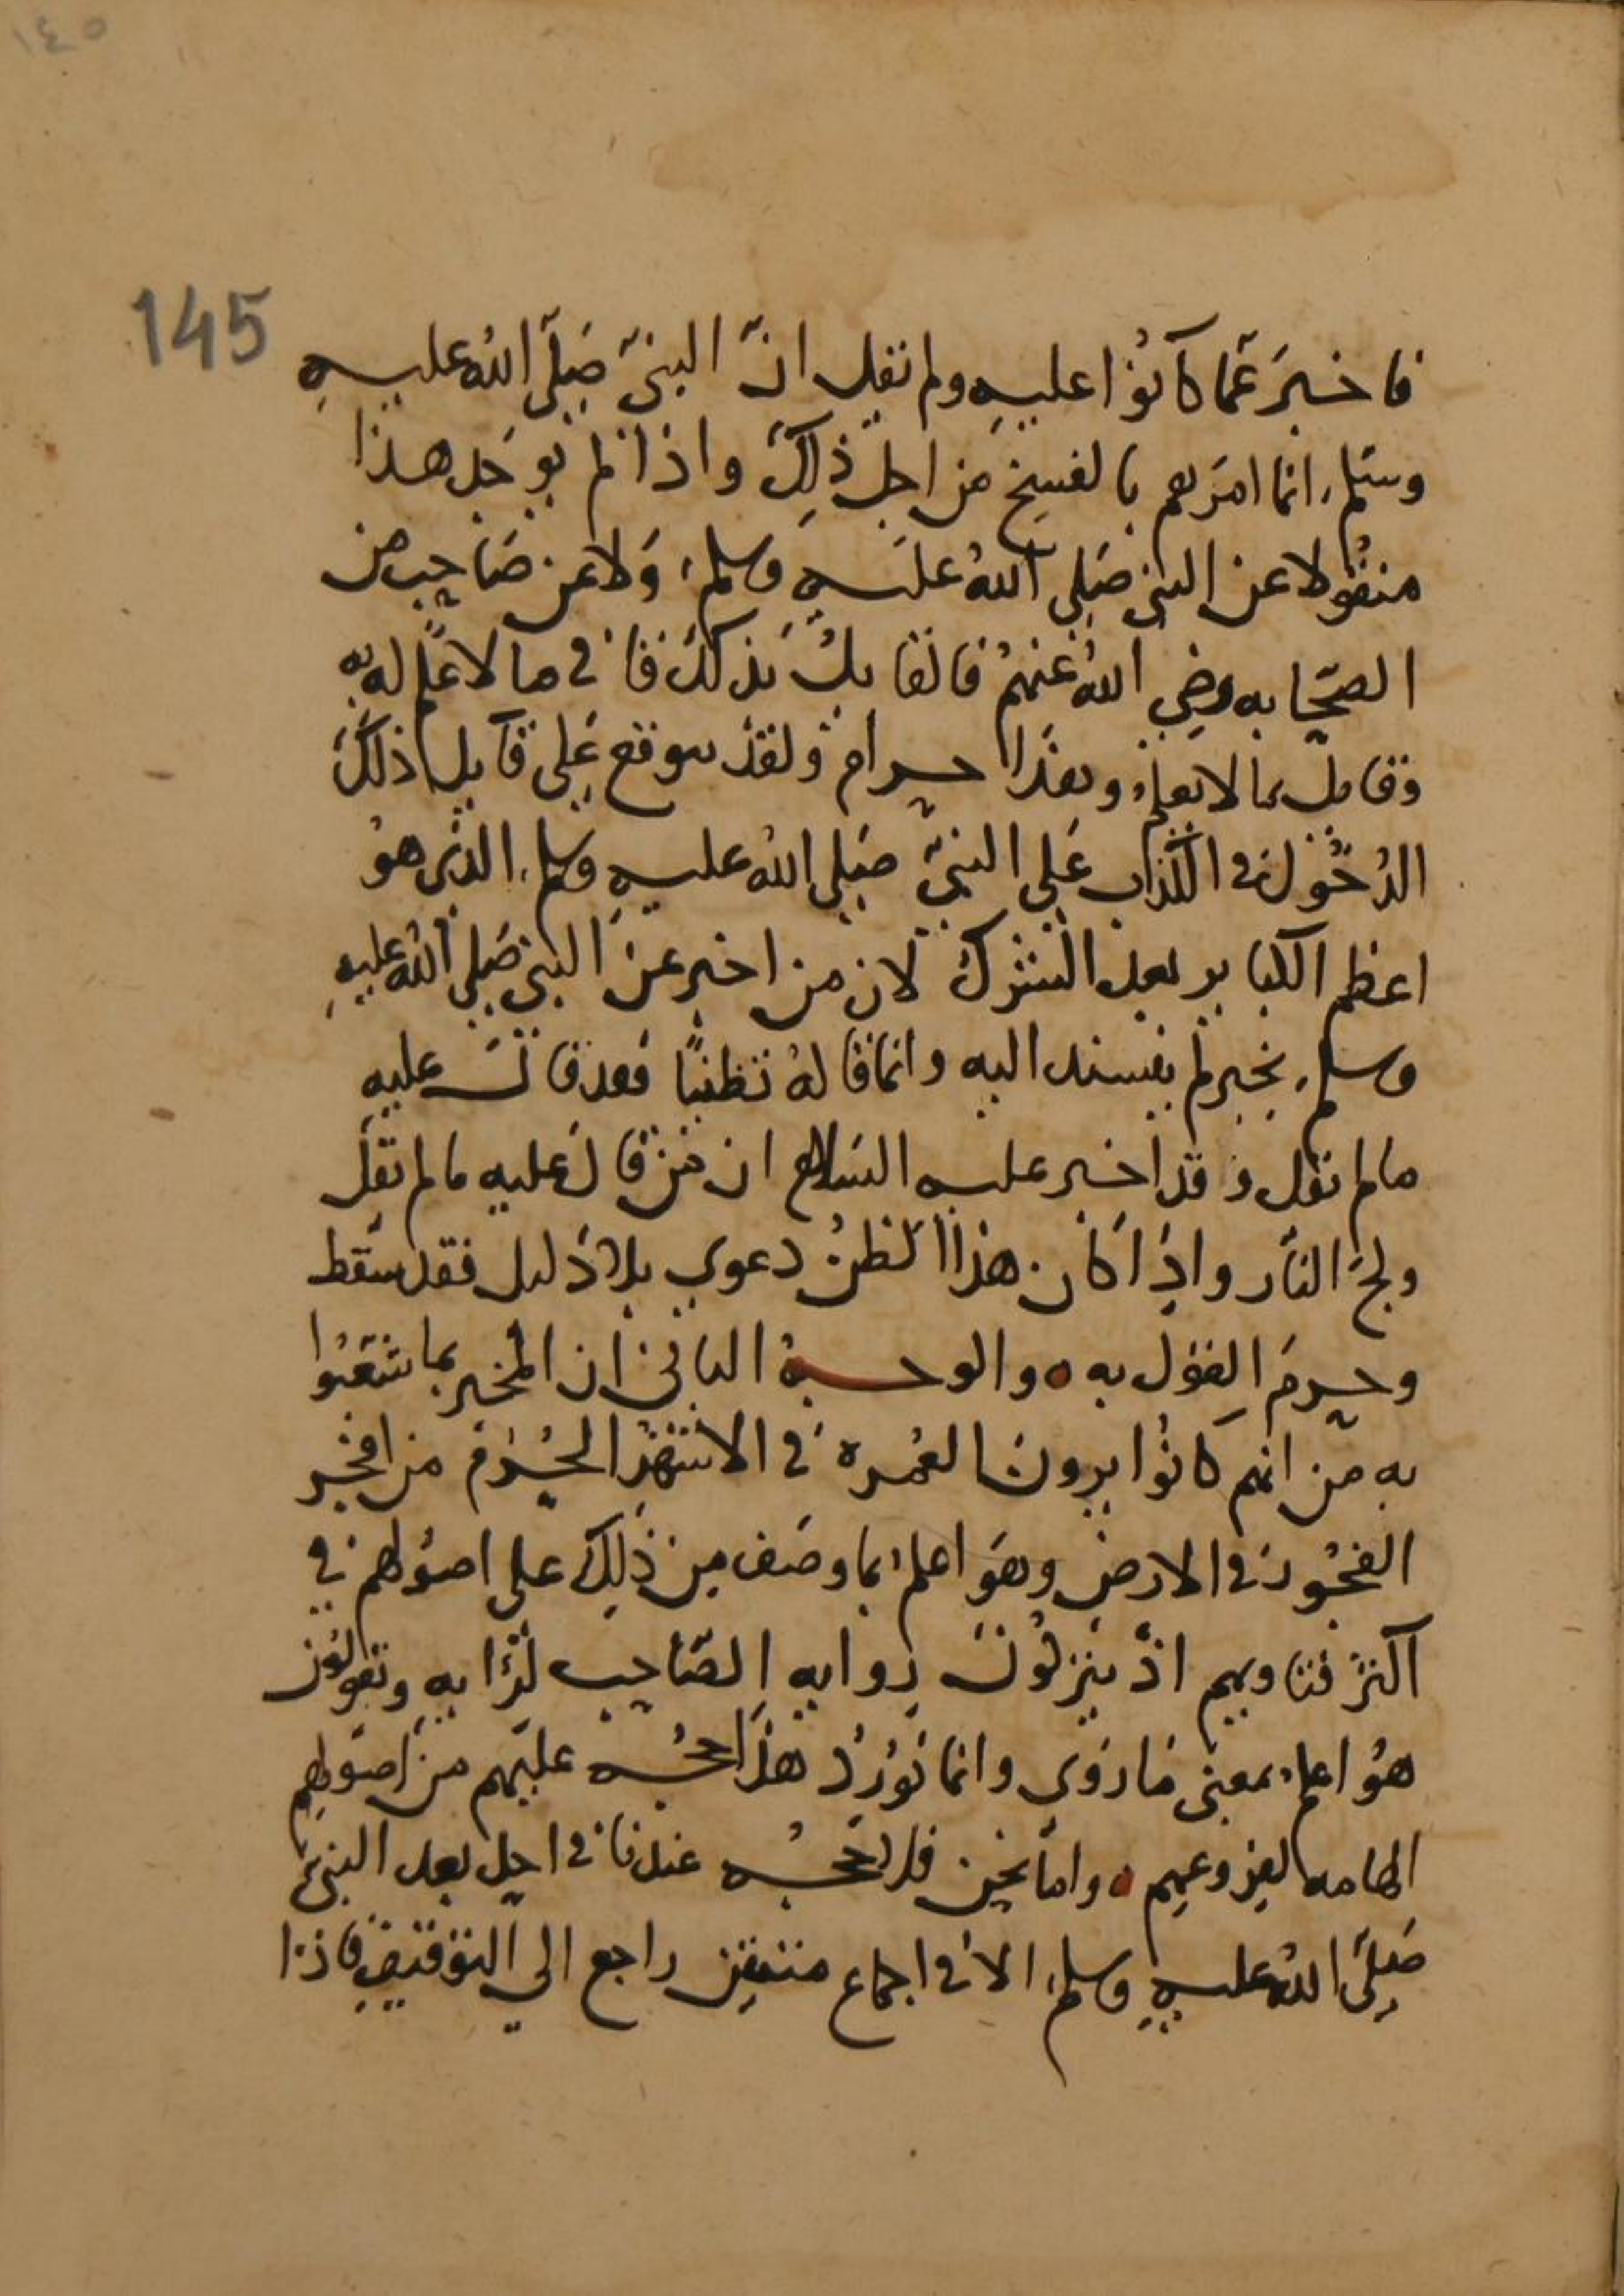 ١٤٥
145
فاخبر عما كانوا عليه ولم يقل ان النبي صلى الله عليه
وسلم انما امرهم بالفسخ من اجل ذلك واذا لم يوجد هذا
منقولا عن النبي صلى الله عليه وسلم ولا عن صاحب من
الصحابه رضي الله عنهم فالقايل بذلك قاف ما لا علم له به
وقايل بما لا يعلم وهذا حرام ولقد يتوقع على قايل ذلك
الدخول في الكذاب على النبي صلى الله عليه وسلم الذى هو
اعظم الكباير بعد الشرك لان من اخبر عن النبي صلى الله عليه
وسلم بخبر لم يسنده اليه وانما قاله تظنيا فقد قال عليه
ما لم يقل وقد اخبر عليه السلام ان من قال عليه ما لم يقل
ولج النار واذا كان هذا الظن دعوي بلا دليل فقد سقط
وحرم القول به ه والوجه الثاني ان المخبر بما شغبوا
به من انهم كانوا يرون العمره في الاشهر الحرم من افجر
الفجور في الارض وهو اعلم بما وصف من ذلك على اصولهم في
اكثر فتاويهم اذ يتركون روايه الصاحب لرايه ويقولون
هو اعلم بمعنى ما روي وانما نورد هذا حجه عليهم من اصولهم
الهادمه لفروعهم ه واما نحن فلا حجه عندنا في احد بعد النبي
صلى الله عليه وسلم الا في اجماع متيقن راجع الي التوقيف فاذا